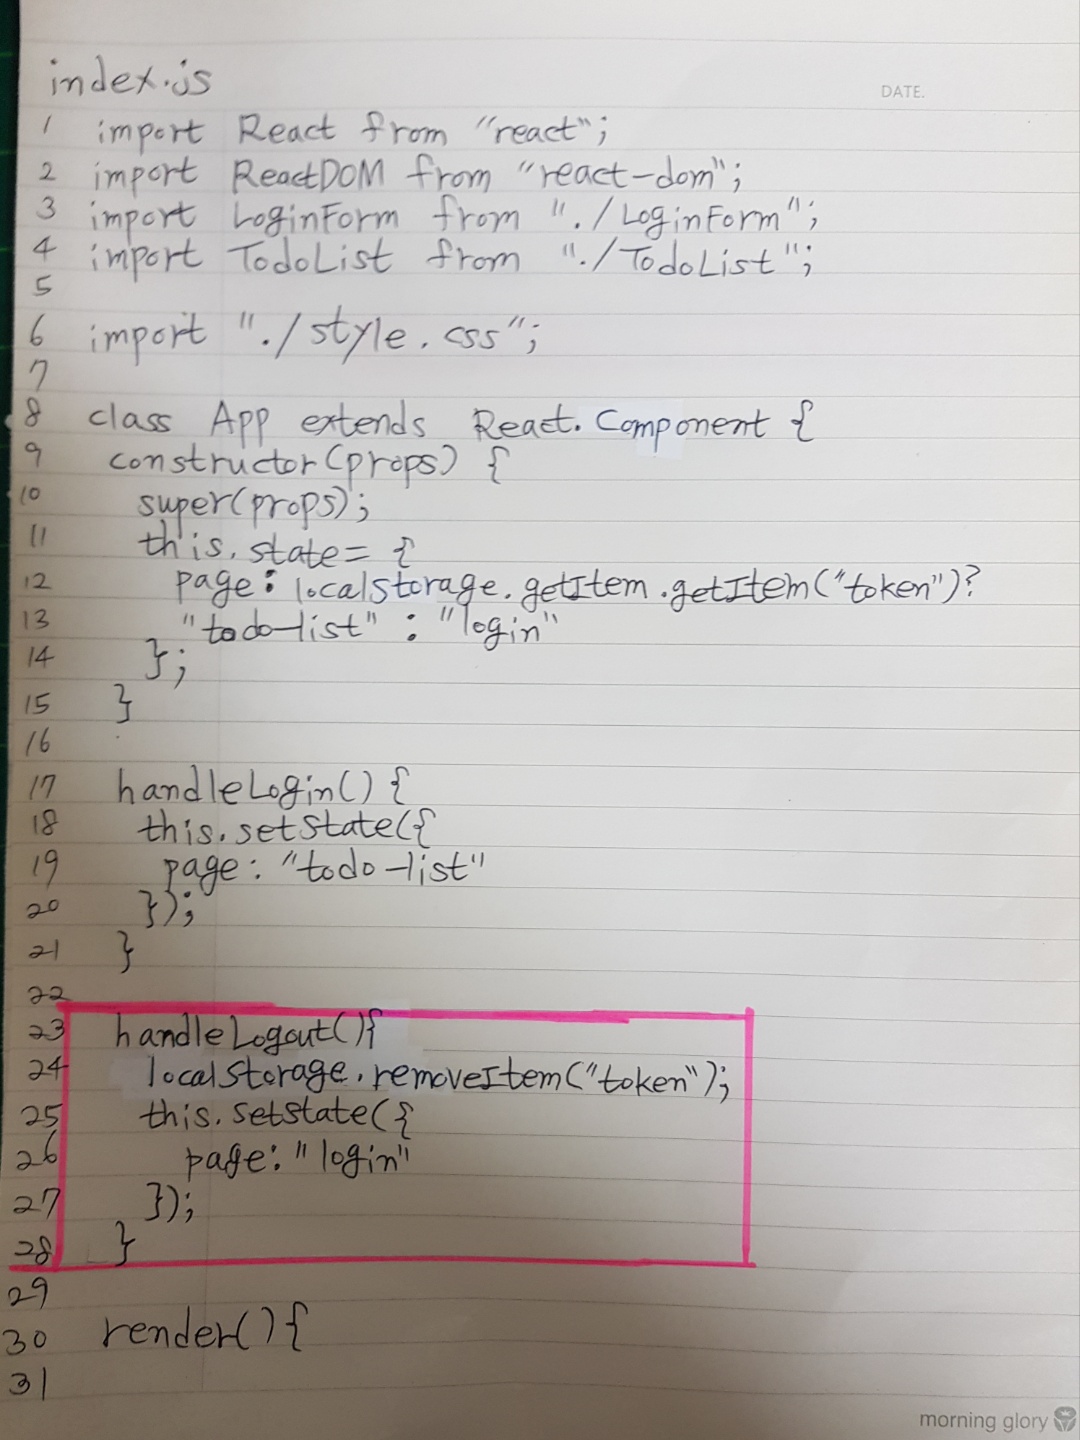 DATE.
index.js
1 import React from "react";
2 import ReactDOM from "react-dom";
3 import LoginForm from "./LoginForm";
4 import TodoList from "./TodoList";
5
6 import "./style.css";
7
8 class App extends React.Component {
9 constructor(props) {
10 super(props);
11 this.state= {
12 page: localStorage.getItem.getItem("token")?
13 "todo-list" : "login"
14 };
15 }
16
17 handleLogin() {
18 this.setState({
19 page: "todo-list"
20 });
21 }
22
23 handleLogout(){
24 localStorage.removeItem("token");
25 this.setState({
26 page: "login"
27 });
28 }
29
30 render(){
31
morning glory